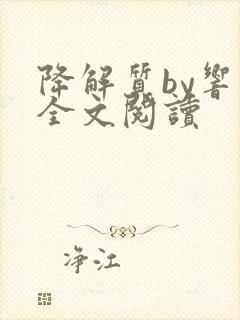 降解質by響
全文閱讀
净江